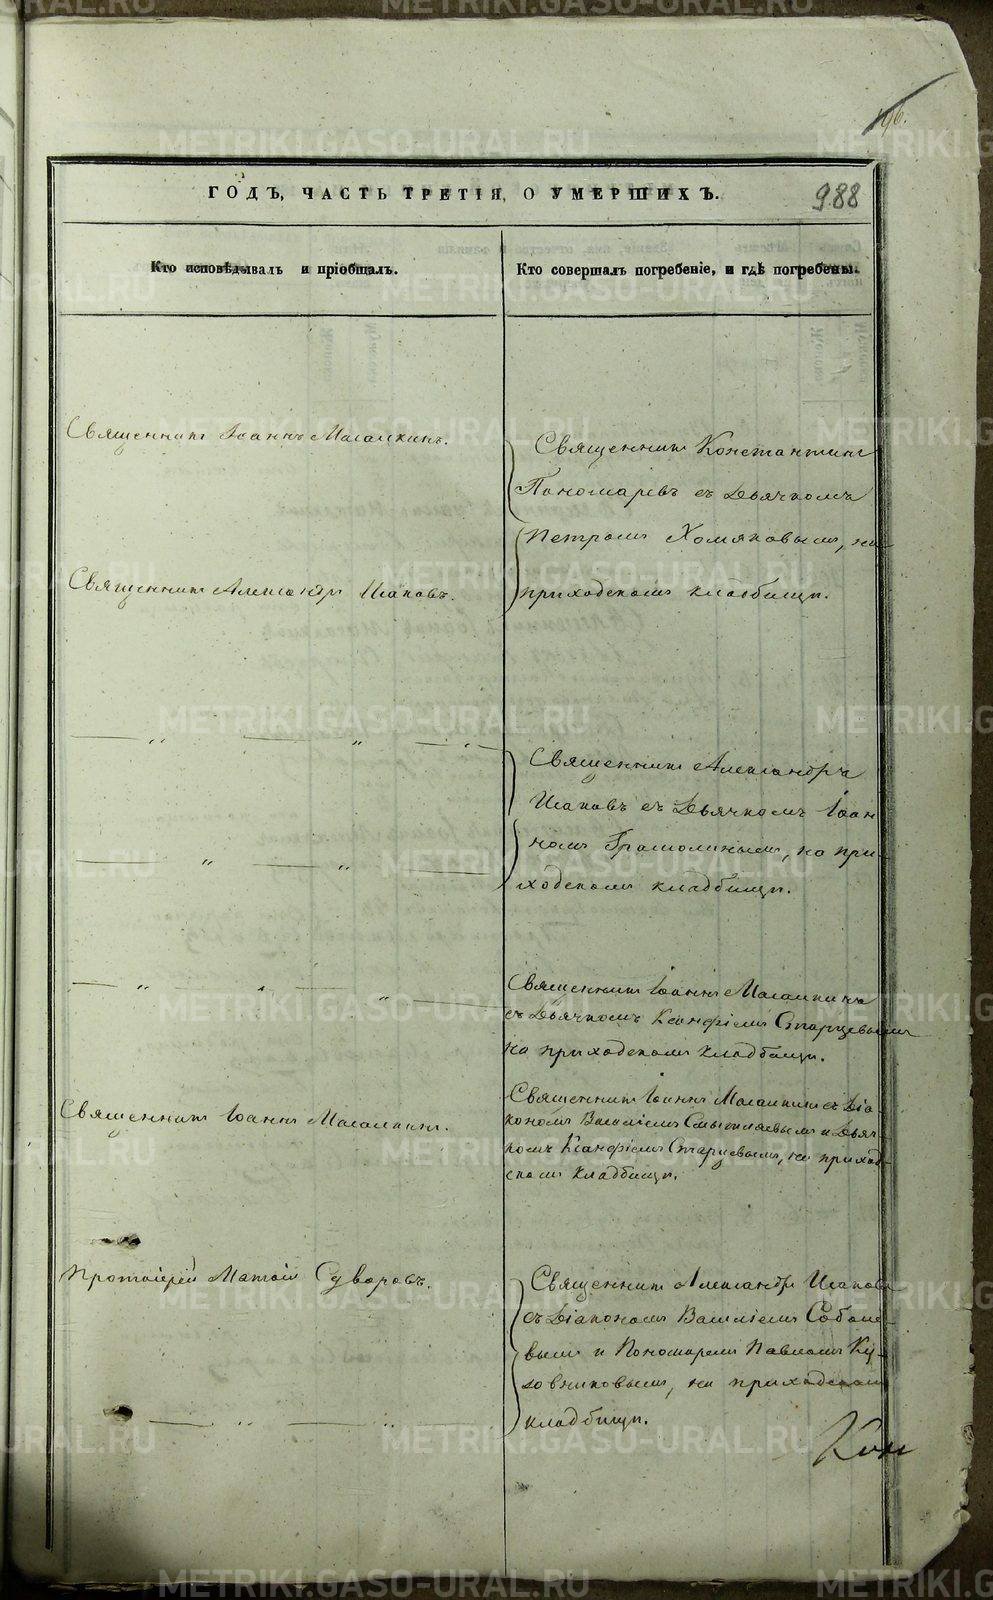 196.
ГОДЪ, ЧАСТЬ ТРЕТІЯ, О УМЕРШИХЪ.
988
Кто исповѣдывалъ и пріобщалъ.
Кто совершалъ погребеніе, и гдѣ погребены.
Священникъ Іоаннъ
Священникъ Константинъ
Пономаревъ съ Дьячкомъ
Петромъ Хомяковымъ, на
приходскомъ кладбищѣ.
Священникъ Александръ Исаковъ.
Священникъ Александръ
Исаковъ съ Дьячкомъ Іоан
номъ Грамолинымъ, на при-
ходскомъ кладбищѣ.
Священникъ Іоаннъ
съ Дьячкомъ Ксанфіемъ Старцевымъ
на приходскомъ кладбищѣ.
Священникъ Іоаннъ
Священникъ Іоаннъ съ Діа-
кономъ Василіемъ и Дьяч-
комъ Ксанфіемъ Старцевымъ, на приход-
скомъ кладбищѣ.
Протоіерей Матѳій Суворовъ.
Священникъ Александръ Исаковъ
съ Діакономъ Василіемъ Соболе-
вымъ и Пономаремъ Павломъ Ку-
зовниковымъ, на приходскомъ
кладбищѣ.
METRIKI.GASO-URAL.RU